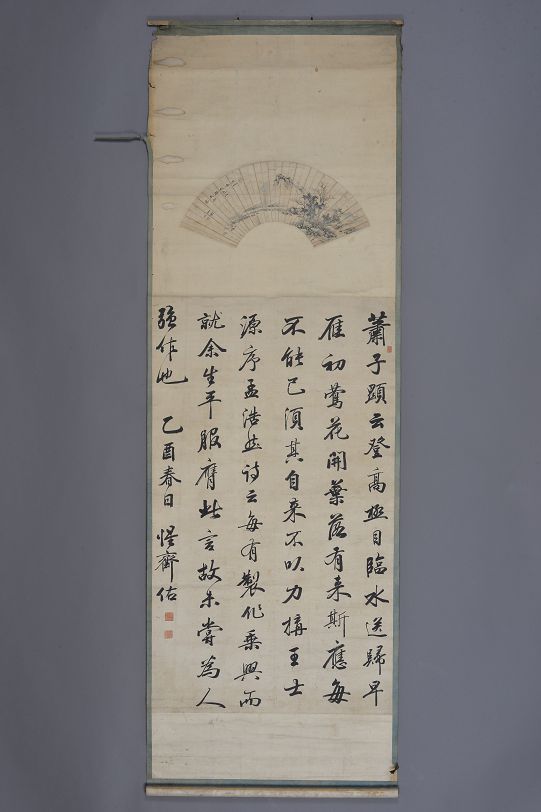 蕭子顕云登高極目臨水送歸早
雁初鶯花開葉落有来斯應每
不能已須其自来不以力搆王士
源序孟浩然詩云每有製作乗興而
就余生平服膺此言故未嘗為人
強作也 乙酉春日 怪齋佑